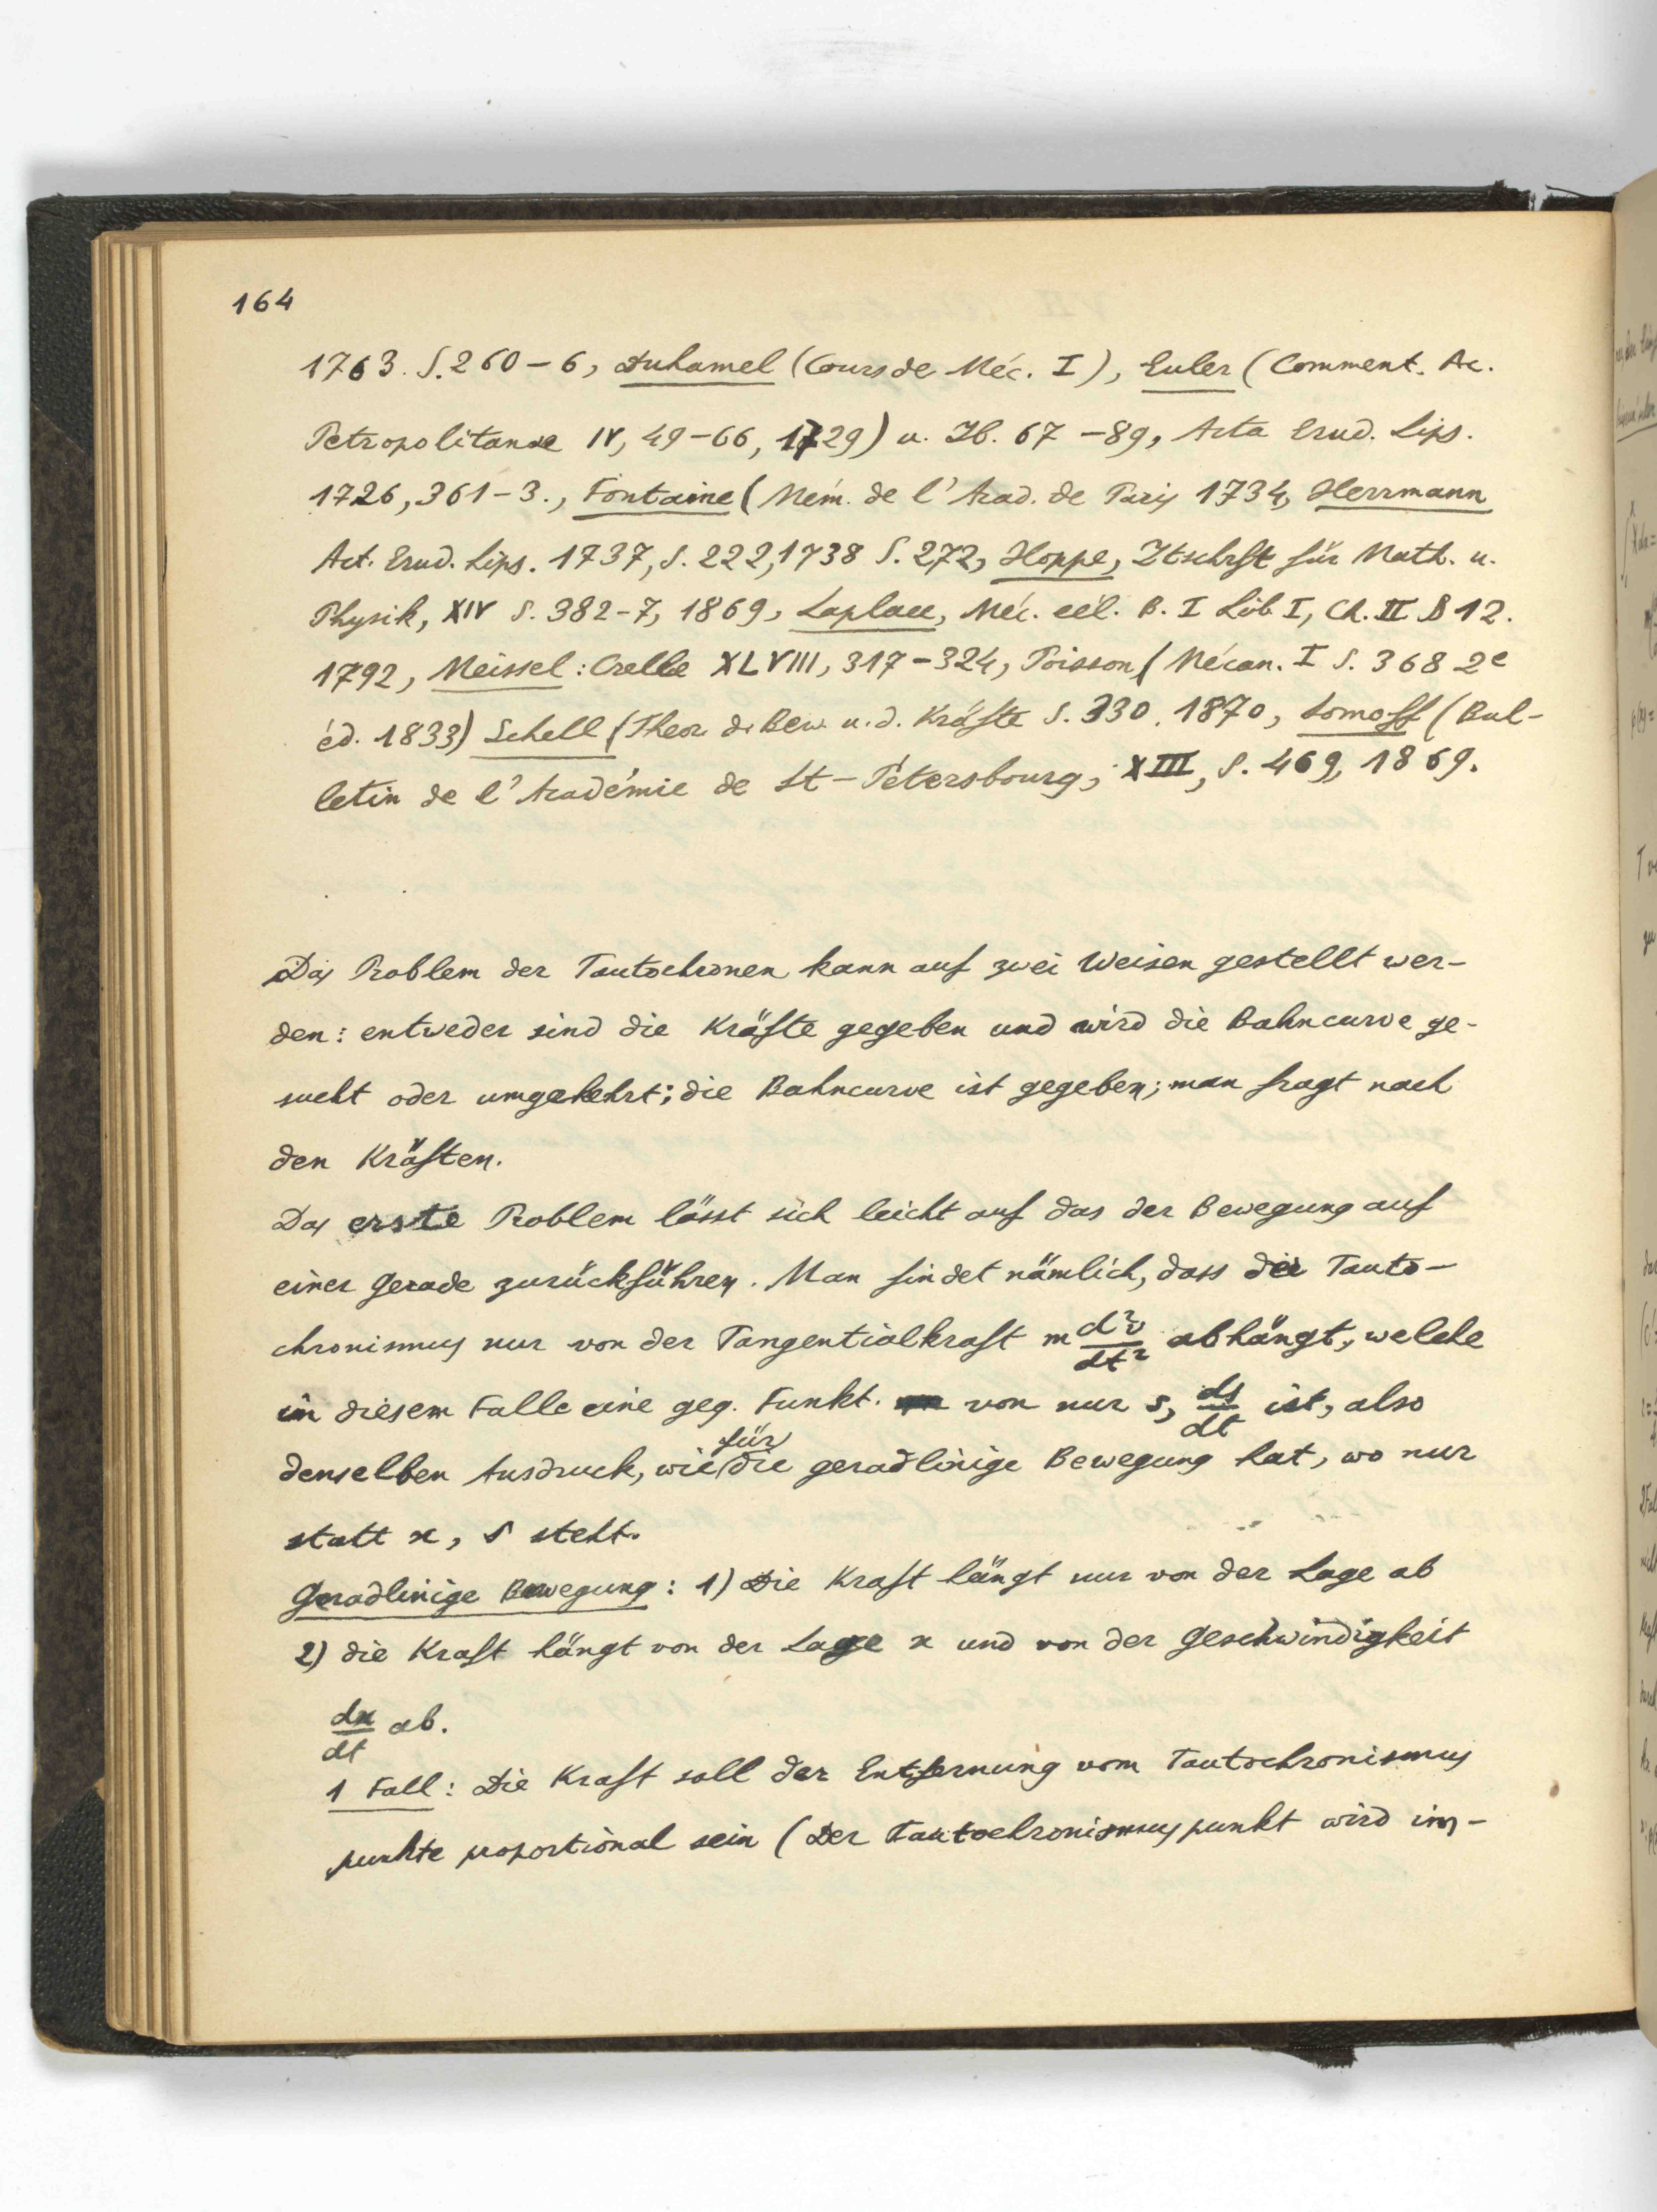 164
1763. S. 260-6, Duhamel (Cours de Méc. I), Euler (Comment. Ac.
Petropolitanae IV, 49-66, 1729) u. Ib. 67-89, Acta Erud. Lips.
1726, 361-3., Fontaine (Mém. de l'Acad. de Paris 1734, Herrmann
Act. Erud. Lips. 1737, S. 222, 1738 S. 272, Hoppe, Ztschrft für Math. u.
Physik, XIV S. 382-7, 1869, Laplace, Méc. cél. B. I Lib. I, Ch. II § 12.
1792, Meissel: Crelle XLVIII, 317-324, Poisson (Mécan. I S. 368 2e
éd. 1833) Schell (Theor. d. Bew. u. d. Kräfte S. 330. 1870, Somoff (Bul-
letin de l'Académie de St-Pétersbourg, XIII, S. 469, 1869.
Das Problem der Tautochronen kann auf zwei Weisen gestellt wer-
den: entweder sind die Kräfte gegeben und wird die Bahncurve ge-
sucht oder umgekehrt; die Bahncurve ist gegeben; man fragt nach
den Kräften.
Das erste Problem lässt sich leicht auf das der Bewegung auf
einer Gerade zurückführen. Man findet nämlich, dass der Tauto-
chronismus nur von der Tangentialkraft m d²v/dt² abhängt, welche
in diesem Falle eine geg. Funkt. von nur s, ds/dt ist, also
denselben Ausdruck, wie für die geradlinige Bewegung hat, wo nur
statt x, s steht.
Geradlinige Bewegung: 1) Die Kraft hängt nur von der Lage ab
2) die Kraft hängt von der Lage x und von der Geschwindigkeit
dx/dt ab.
1 Fall: Die Kraft soll der Entfernung vom Tautochronismus
punkte proportional sein (Der Tautochronismuspunkt wird im-